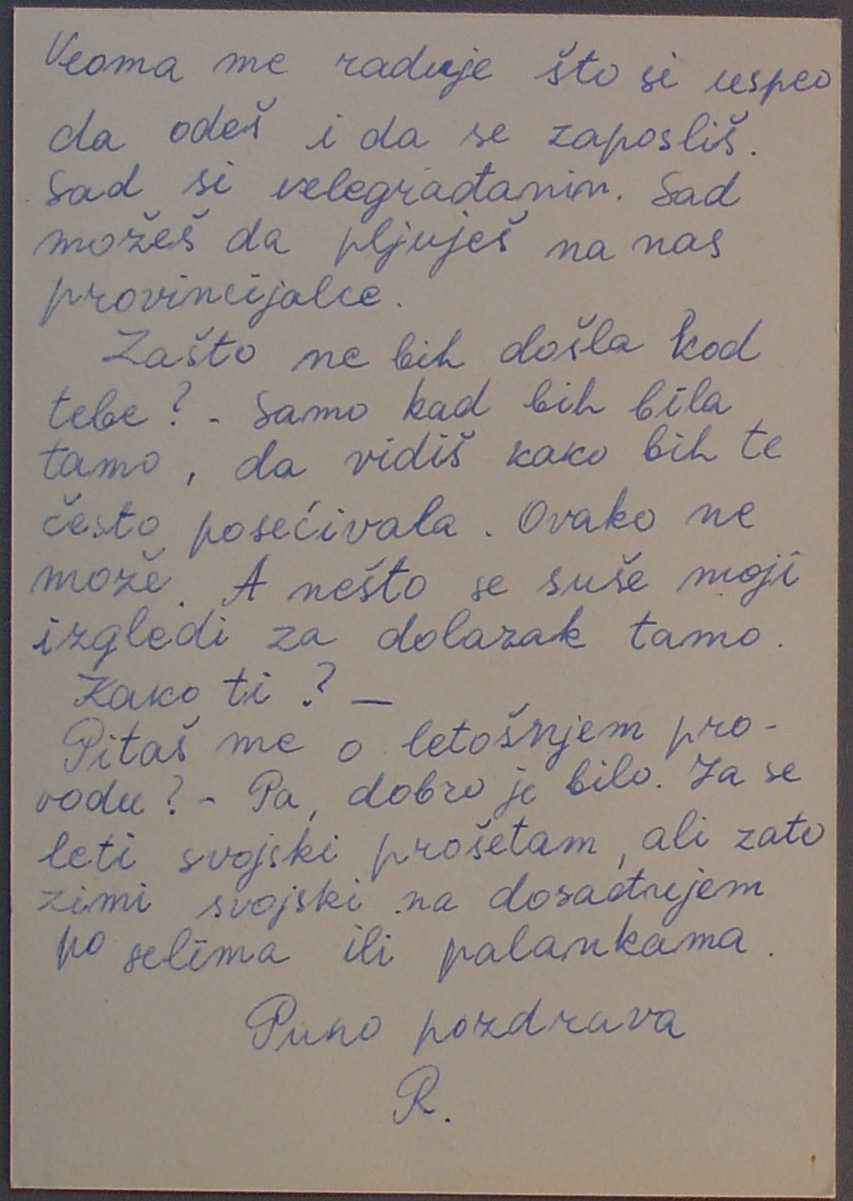 Veoma me raduje što si uspeo
da odeš i da se zaposliš.
Sad si velegrađanin. Sad
možeš da pljuješ na nas
provincijalce.
Zašto ne bih došla kod
tebe? - Samo kad bih bila
tamo, da vidiš kako bih te
često posećivala. Ovako ne
može. A nešto se suše moji
izgledi za dolazak tamo.
Kako ti? —
Pitaš me o letošnjem pro-
vodu? - Pa, dobro je bilo. Ja se
leti svojski prošetam, ali zato
zimi svojski na dosađujem
po selima ili palankama.
Puno pozdrava
R.